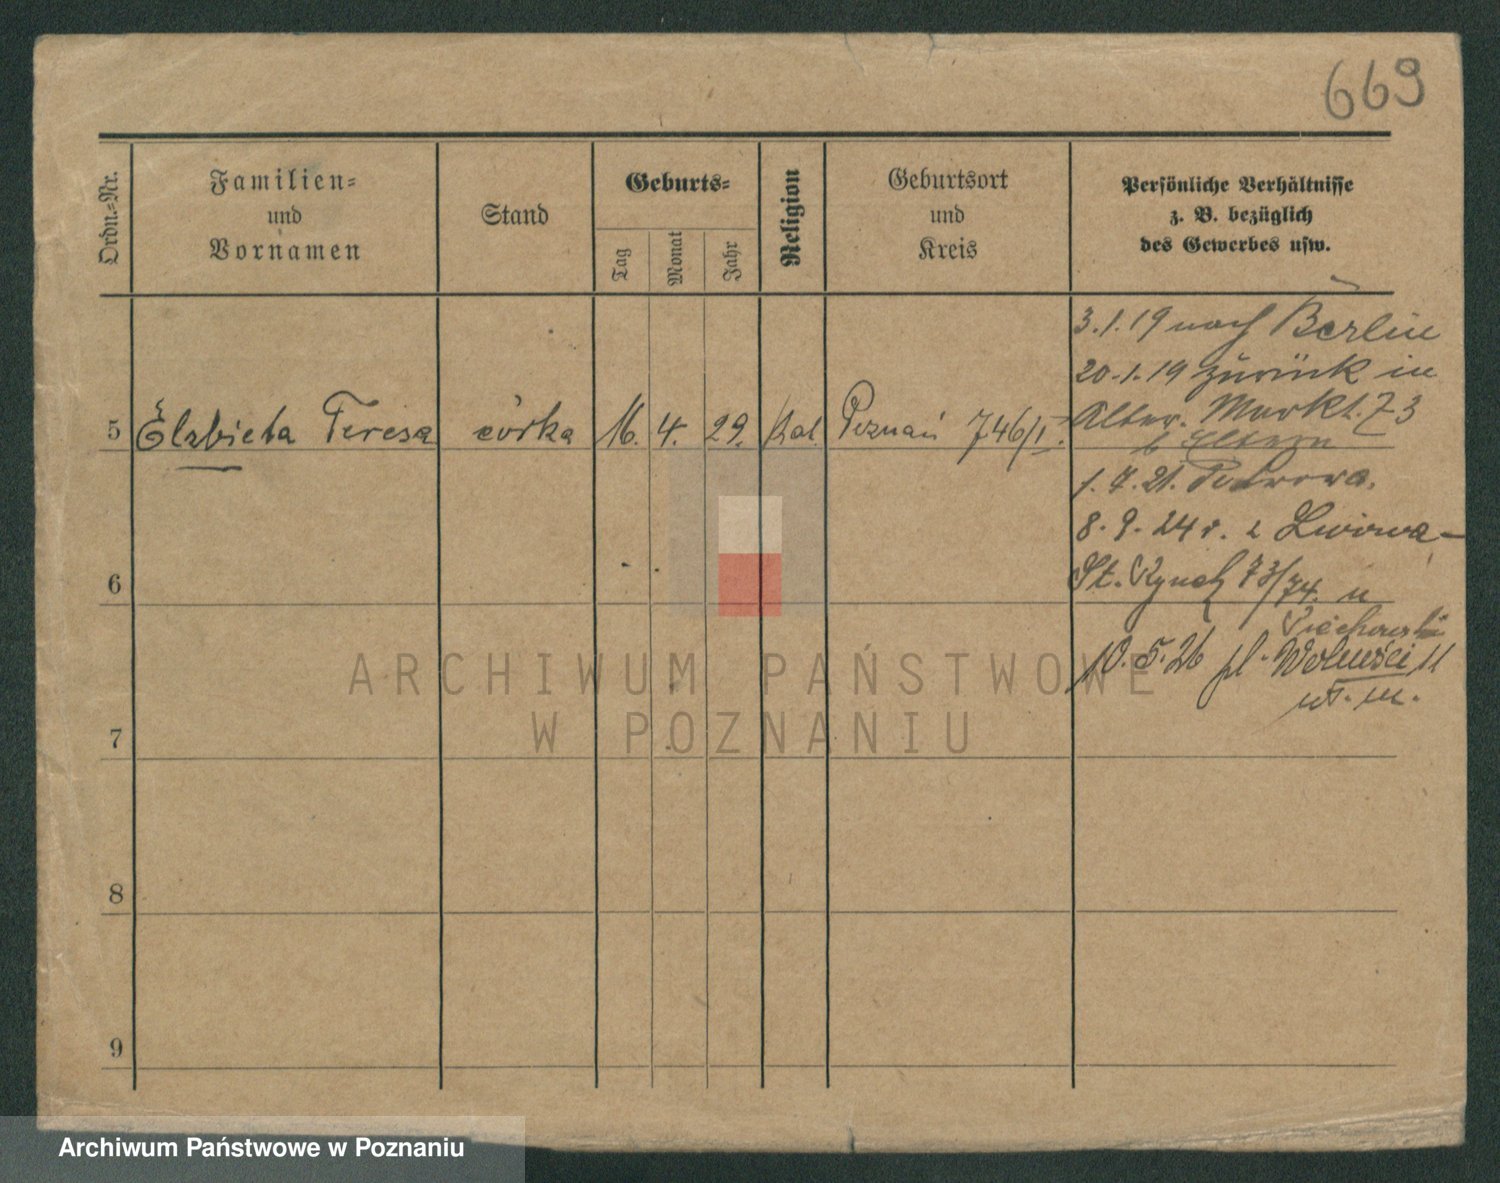 669
Ordn.-Nr.
Familien-
und
Vornamen
Stand
Geburts-
Tag
Monat
Jahr
Religion
Geburtsort
und
Kreis
Persönliche Verhältnisse
z. B. bezüglich
des Gewerbes usw.
3.1.19 nach Berlin
20.1.19 zurück in
Alter. Markt. 73
b Eltern
5 Elzbieta Teresa córka 16. 4. 29. kat Poznań 746/I.
1.7.21.
8.9.24 r. z Lwowa-
6 St. Rynek 73/74. u
10.5.26 pl. Wolności 11
7
8
9
ARCHIWUM PAŃSTWOWE
W POZNANIU
Archiwum Państwowe w Poznaniu